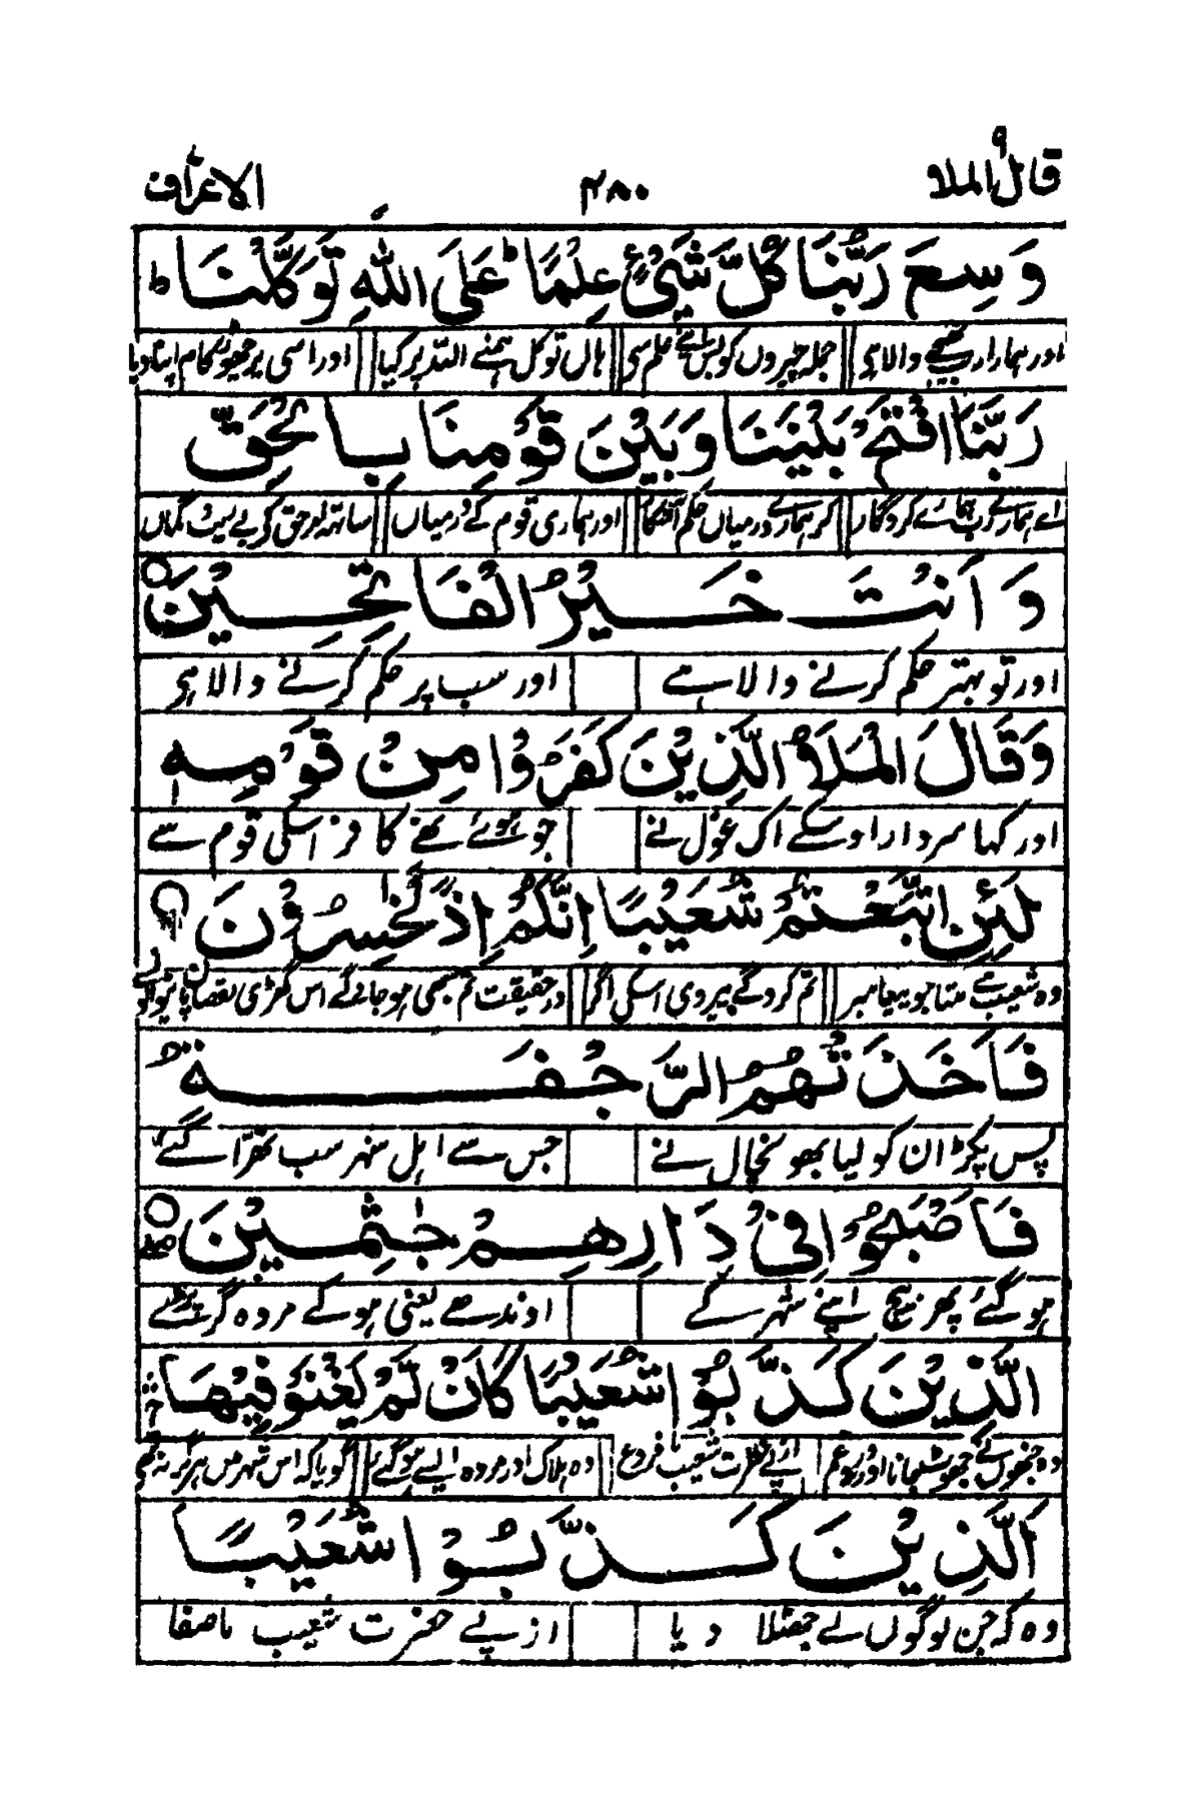 قال الملا ۹ ۴۸۰ الاعراف
وَسِعَ رَبُّنَا كُلَّ شَیْءٍ عِلْمًا ؕ عَلَی اللّٰهِ تَوَكَّلْنَا ؕ
اور ہمارا رب ہے والا ہی جملہ چیزوں کو بس علم سی ہاں توکل ہمنے اللہ پر کیا اور اسی پر چھوڑ کام اپنا دیا
رَبَّنَا افْتَحْ بَیْنَنَا وَبَیْنَ قَوْمِنَا بِالْحَقِّ
اے ہمارے رب ہمارے کردگار کر ہمارے درمیاں حکم اور ہماری قوم کے درمیاں ساتھ اور حق کر بے گماں
وَاَنْتَ خَیْرُ الْفَاتِحِیْنَ ۝
اور تو بہتر حکم کرنے والا ہے اور سب پر حکم کرنے والا ہی
وَقَالَ الْمَلَاُ الَّذِیْنَ كَفَرُوْا مِنْ قَوْمِهٖ
اور کہا سردار اوسکے اک غول نے جو ہوئے تھے کافر اسکی قوم سے
لَئِنِ اتَّبَعْتُمْ شُعَیْبًا اِنَّكُمْ اِذًا لَّخٰسِرُوْنَ ۝
وہ شعیب ہے جو پیغامبر تم کروگے پیروی اسکی اگر درحقیقت تم سبھی ہو جاؤگے اس گھڑی نقصان پانیوالو
فَاَخَذَتْهُمُ الرَّجْفَةُ
پس پکڑ ان کو لیا بھونچال نے جس سے اہل شہر سب تھرّا گئے
فَاَصْبَحُوْا فِیْ دَارِهِمْ جٰثِمِیْنَ ۝
ہو گئے پھر بیچ اپنے شہر کے اوندھے یعنی ہو کے مردہ گر پڑے
الَّذِیْنَ كَذَّبُوْا شُعَیْبًا كَاَنْ لَّمْ یَغْنَوْا فِیْهَا
وہ جنہوں نے جھوٹ جانا از پئے حضرت شعیب وہ ہلاک اور مردہ ایسے ہو گئے گویا کہ اس شہر میں ہرگز نہ تھے
اَلَّذِیْنَ كَذَّبُوْا شُعَیْبًا
وہ کہ جن لوگوں نے جھٹلا دیا از پئے حضرت شعیب باصفا